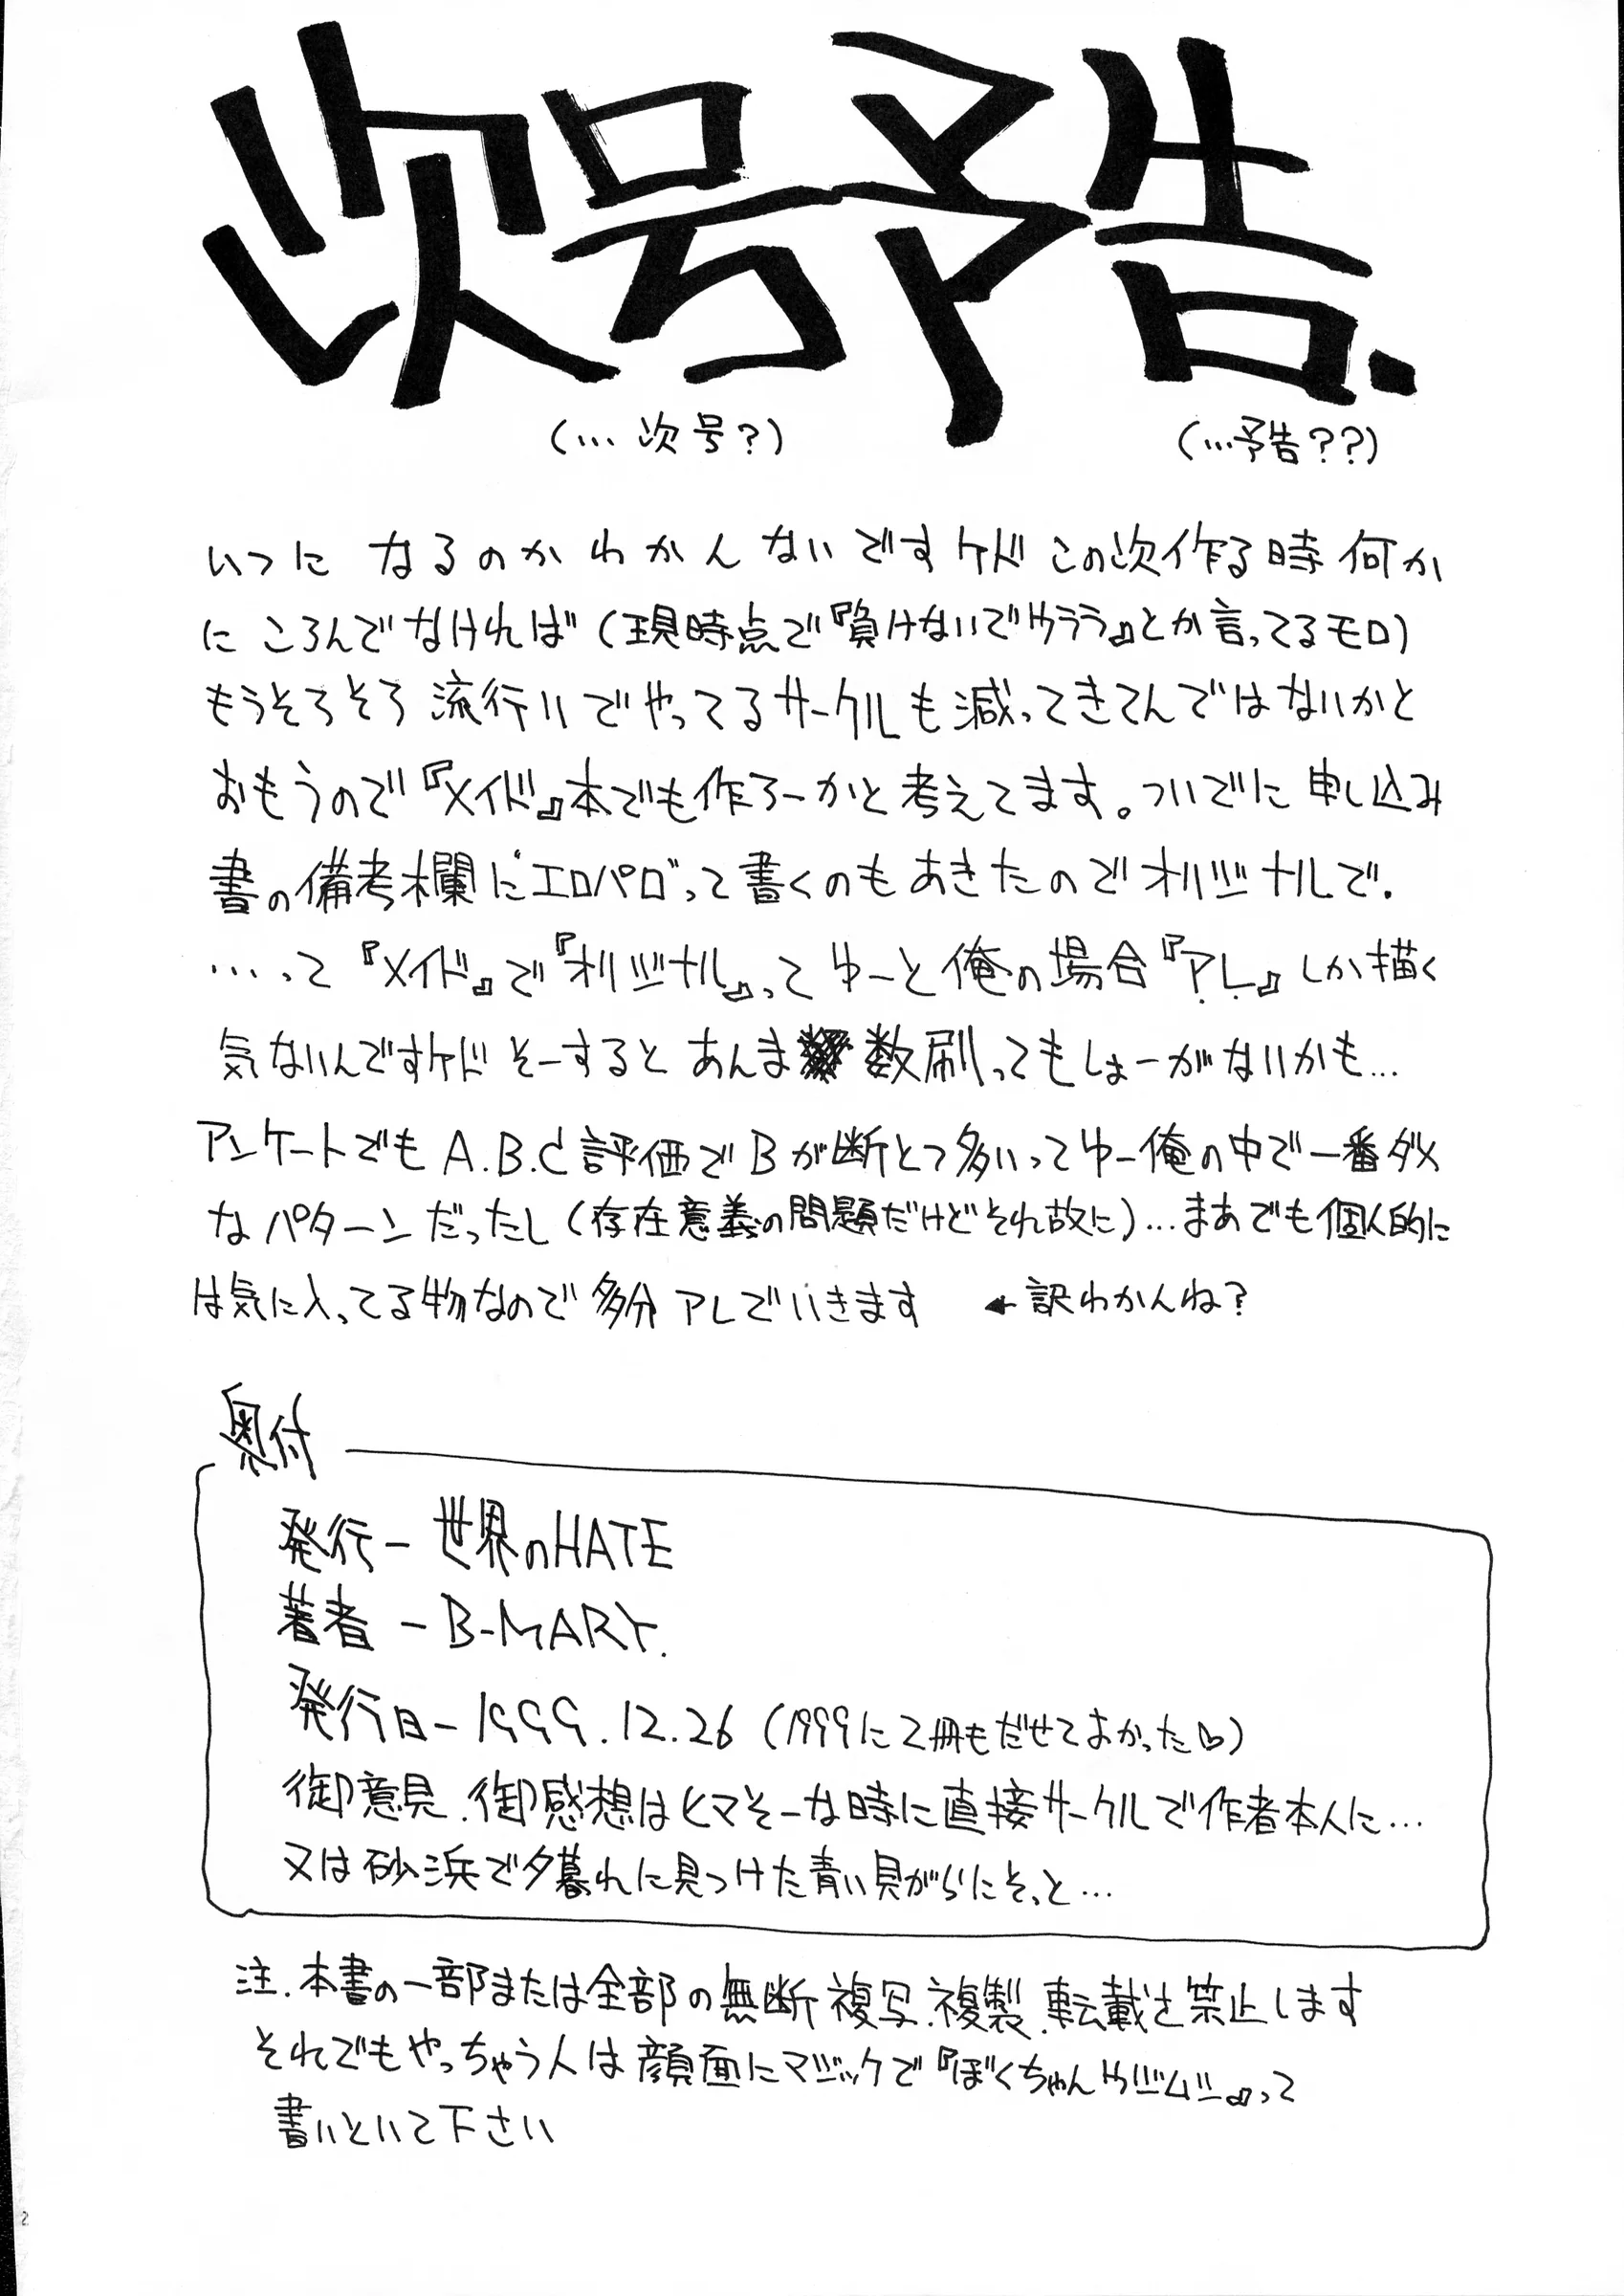 次号予告.
(… 次号?) (…予告??)
いつに なるのかわかんないですケド この次作る時何か
に ころんでなければ (現時点で『負けないでウララ』とか言ってるモロ)
もうそろそろ流行りでやってるサークルも減ってきてんではないかと
おもうので『メイド』本でも作ろーかと考えてます。ついでに申し込み
書の備考欄に“エロパロ”って書くのもあきたのでオリジナルで.
…って『メイド』で『オリジナル』ってゆーと俺の場合『アレ』しか描く
気ないんですケド そーすると あんま 数刷ってもしょーがないかも…
アンケートでも A.B.C評価でBが断とつ多いってゆー俺の中で一番ダメ
なパターンだったし (存在意義の問題だけどそれ故に)…まあでも個人的に
は気に入ってる物なので多分アレでいきます ←訳わかんね?
奥付
発行ー世界のHATE
著者ーB-MARY.
発行日ー1999.12.26 (1999に2冊もだせてよかった♡)
御意見.御感想はヒマそーな時に直接サークルで作者本人に…
又は砂浜で夕暮れに見つけた青い貝がらにそっと…
注.本書の一部または全部の無断複写.複製.転載を禁止します
それでもやっちゃう人は顔面にマジックで『ぼくちゃん
』って
書いといて下さい
2